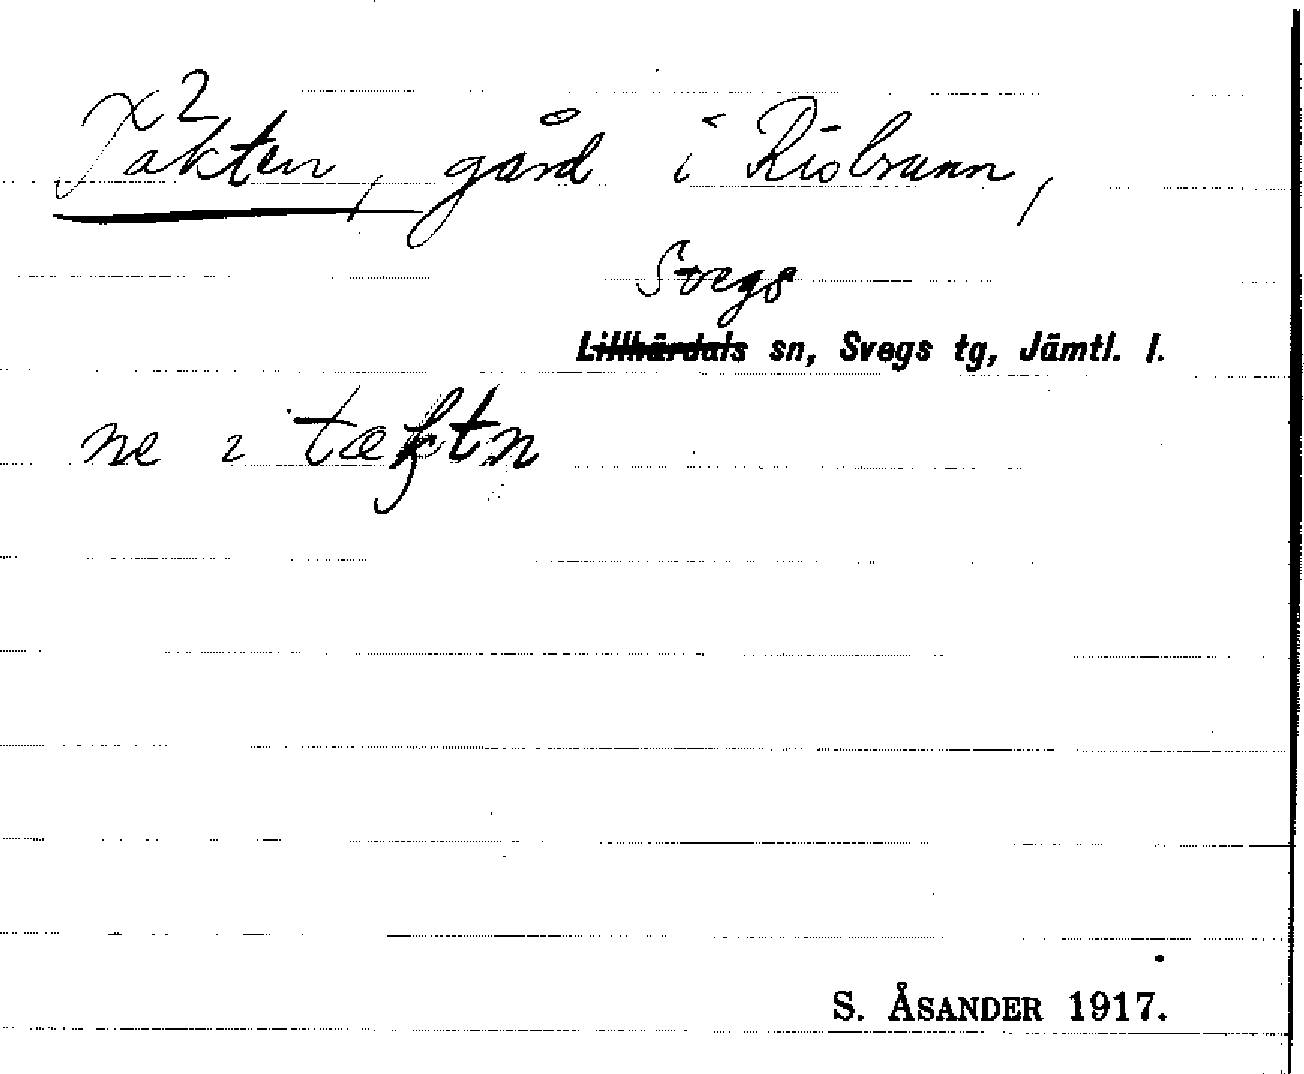 x 2
Takten, gård i Risbrunn,
Svegs
Lillhärdals sn, Svegs tg, Jämtl. l.
ne i tæktn
S. ÅSANDER 1917.